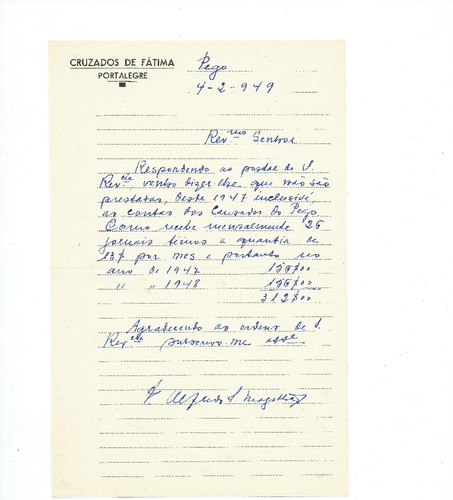 CRUZADOS DE FÁTIMA
PORTALEGRE
Pego
4-2-949
Rev.mo Senhor
Respondendo ao postal de V.
Rev.cia venho dizer-lhe que não são
prestadas, desde 1947 inclusive,
as contas dos Cruzados do Pego
Como recebe mensalmente 26
jornais temos a quantia de
13$ por mês e portanto no
ano de 1947 156$00
" " 1948 156$00
312$00
Agradecendo as ordens de V.
Rev.cia subscrevo-me
P. Alfredo S. Magalhães